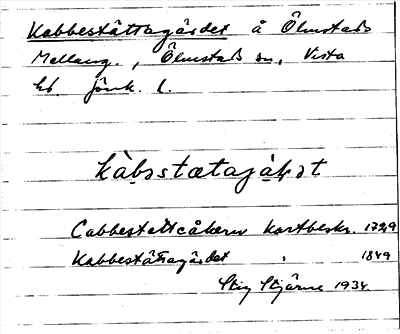 Kabbestättagärdet å Ölmstads
Mellang., Ölmstads sn, Vista
hd. Jönk. l.
kàbəstætagä̀ḷət
Cabbestettcåkern Kartbeskr. 1729
Kabbestättagärdet " 1849
Stig Stjärne 1934.